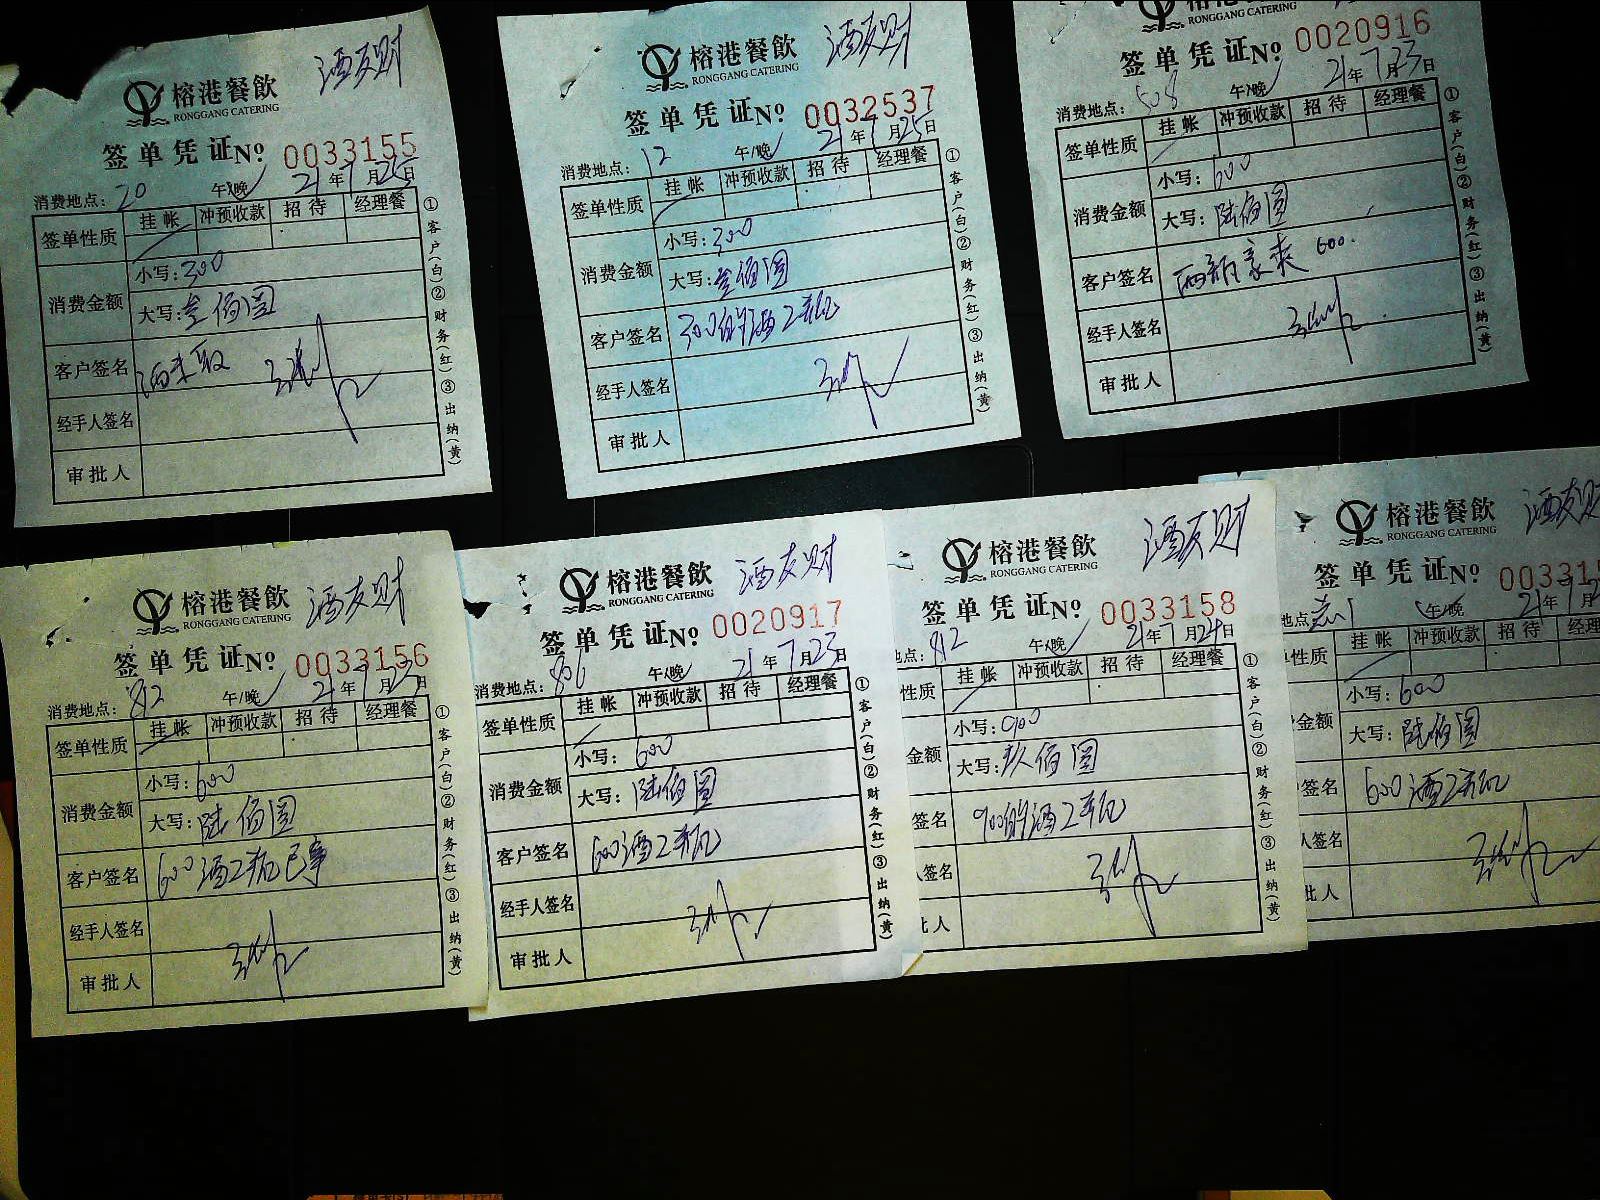 榕港餐飲 酒友财
RONGGANG CATERING
签单凭证 Nº 0033155
消费地点: 20 午/晚 21年7月25日
签单性质 挂帐 冲预收款 招待 经理餐
消费金额
小写: 300
大写: 叁佰圆
客户签名 酒未取
经手人签名
审批人
①客户(白)②财务(红)③出纳(黄)
榕港餐飲 酒友财
RONGGANG CATERING
签单凭证 Nº 0032537
消费地点: 12 午/晚 21年7月25日
签单性质 挂帐 冲预收款 招待 经理餐
消费金额
小写: 300
大写: 叁佰圆
客户签名 300的酒2瓶
经手人签名
审批人
①客户(白)②财务(红)③出纳(黄)
榕港餐飲
RONGGANG CATERING
签单凭证 Nº 0020916
消费地点: 508 午/晚 21年7月23日
签单性质 挂帐 冲预收款 招待 经理餐
消费金额
小写: 600
大写: 陆佰圆
客户签名 600.
经手人签名
审批人
①客户(白)②财务(红)③出纳(黄)
榕港餐飲 酒友财
RONGGANG CATERING
签单凭证 Nº 0033156
消费地点: 812 午/晚 21年7月23日
签单性质 挂帐 冲预收款 招待 经理餐
消费金额
小写: 600
大写: 陆佰圆
客户签名 600酒2瓶已拿
经手人签名
审批人
①客户(白)②财务(红)③出纳(黄)
榕港餐飲 酒友财
RONGGANG CATERING
签单凭证 Nº 0020917
消费地点: 806 午/晚 21年7月23日
签单性质 挂帐 冲预收款 招待 经理餐
消费金额
小写: 600
大写: 陆佰圆
客户签名 600酒2瓶
经手人签名
审批人
①客户(白)②财务(红)③出纳(黄)
榕港餐飲 酒友财
RONGGANG CATERING
签单凭证 Nº 0033158
地点: 812 午/晚 21年7月24日
性质 挂帐 冲预收款 招待 经理餐
金额
小写: 900
大写: 玖佰圆
签名 900的酒2瓶
签名
批人
①客户(白)②财务(红)③出纳(黄)
榕港餐飲 酒友财
RONGGANG CATERING
签单凭证 Nº 003315
地点: 午/晚 21年7月2
性质 挂帐 冲预收款 招待 经理
金额
小写: 600
大写: 陆佰圆
签名 600酒2瓶
人签名
批人